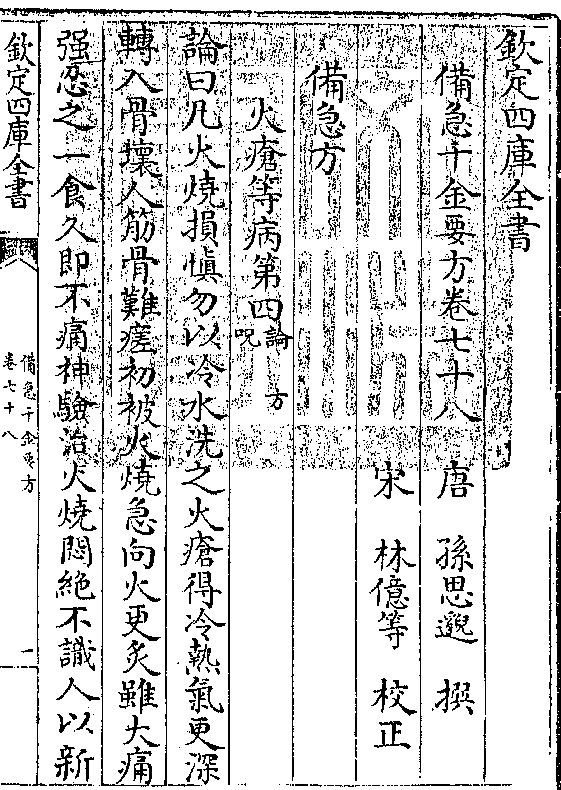 欽定四庫全書
備急千金要方卷七十八
唐 孫思邈 撰
宋 林億等 校正
備急方
火瘡等病第四論 方 呪
論曰凡火燒損愼勿以冷水洗之火瘡得冷熱氣更深
轉入骨壞人筋骨難瘥初被火燒急向火更炙雖大痛
强忍之一食久即不痛神驗治火燒悶絶不識人以新
欽定四庫全書
備急千金要方
卷七十八
一